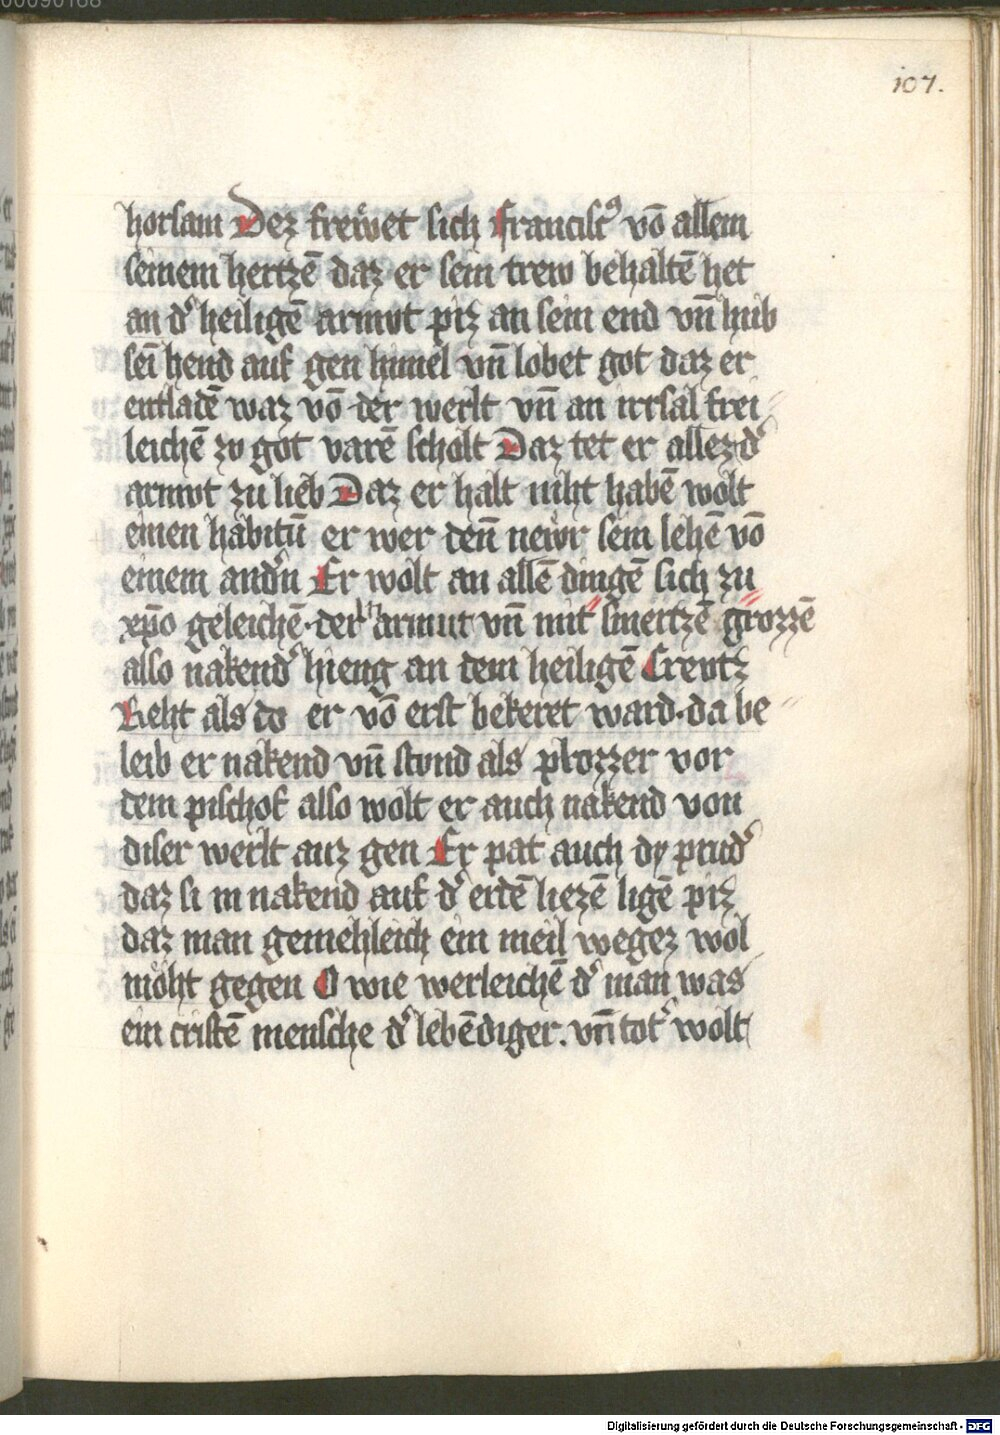 00090168
107.
horsam Dez frewet sich Francisc⁹ vō allem
seinem hertzē daz er sein trew behaltē het
an d' heiligē armvt piz an sein end vn̄ hub
sei hend auf gen himel vn̄ lobet got daz er
entladē waz vō der werlt vn̄ an irrsal frei
leichē zv got varē scholt Daz tet er allez d'
armvt zu lieb Daz er halt niht habē wolt
einen habitū er wer den̄ newr sein lehē vō
einem and'n Er wolt an allē dingē sich zu
xp̄o geleichē · der in armut vn̄ mit smertzē grozzē
also nakend' hieng an dem heiligē Crevtz
Reht als do er vō erst bekeret ward · da be
leib er nakend vn̄ stvnd als plozzer vor
dem pischof also wolt er auch nakend von
diser werlt auz gen Er pat auch dy prud'
daz si in nakend auf d' erdē liezē ligē piz
daz man gemehleich ein meil wegez wol
möht gegen O wie werleichē d' man was
ein cristē mensche d' lebēdiger . vn̄ tot' wolt
Digitalisierung gefördert durch die Deutsche Forschungsgemeinschaft - DFG